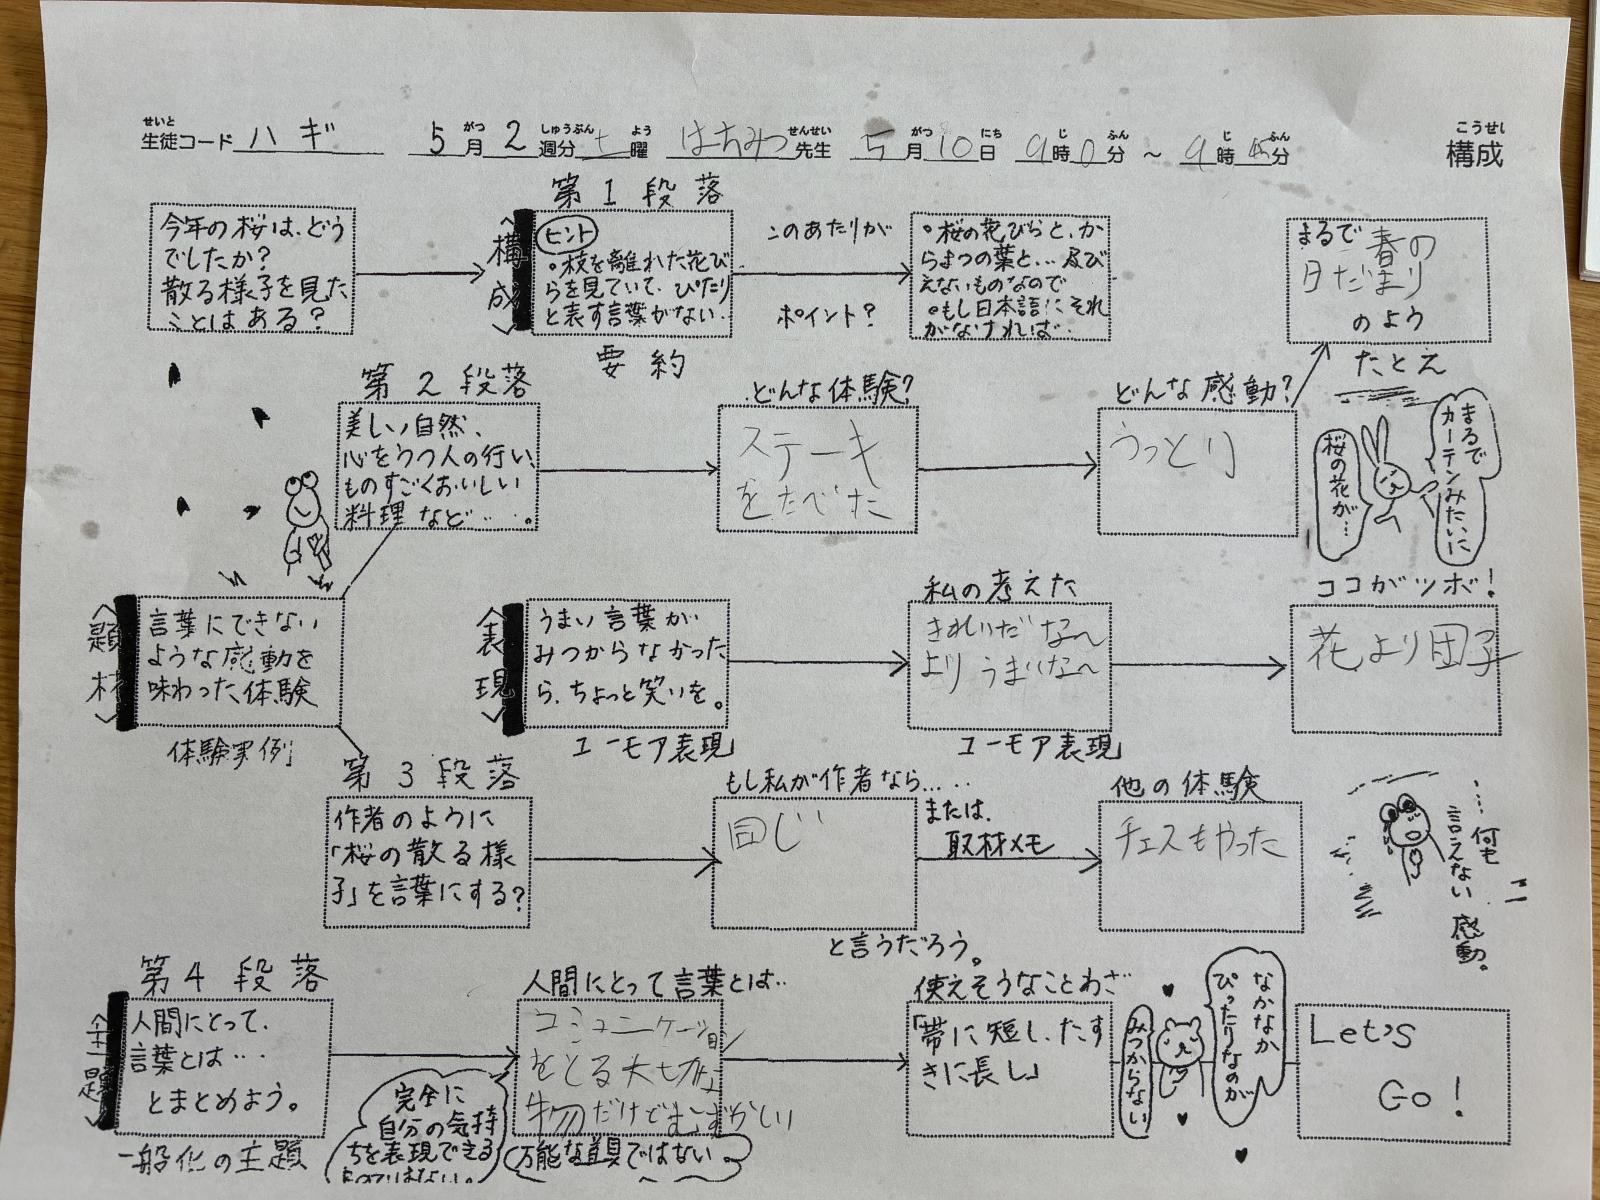 せいと がつ しゅうぶん よう せんせい がつ にち じ ふん じ ふん こうせい
生徒コード ハギ 5月2週分 土曜 はちみつ先生 5月10日 9時0分 ~ 9時45分 構成
第1段落
今年の桜は、どう
でしたか?
散る様子を見た
ことはある?
〈構成〉
ヒント
・枝を離れた花び
らを見ていて、ぴたり
と表す言葉がない…
要約
このあたりが
ポイント?
・桜の花びらと、か
らまつの葉と…及び
えないものなので
・もし日本語にそれ
がなければ…
まるで春の
日だまり
のよう
たとえ
第2段落
美しい自然、
心をうつ人の行い、
ものすごくおいしい
料理など…。
どんな体験?
ステーキ
をたべた
どんな感動?
うっとり
まるで
カーテンみたいに
桜の花が…
〈題材〉
言葉にできない
ような感動を
味わった体験
体験実例
〈表現〉
うまい言葉が
みつからなかった
ら、ちょっと笑いを。
ユーモア表現
私の考えた
きれいだな〜
より うまいな〜
ユーモア表現
ココがツボ!
花より団子
第3段落
作者のように
「桜の散る様
子」を言葉にする?
もし私が作者なら……
同じ
と言うだろう。
または、
取材メモ
他の体験
チェスもやった
…何も
言えない
感動。
第4段落
〈主題〉
人間にとって、
言葉とは…
とまとめよう。
一般化の主題
完全に
自分の気持
ちを表現できる
ものではない。
人間にとって言葉とは…
コミュニケーション
をとる大切な
物だけどむずかしい
万能な道具ではない
使えそうなことわざ
「帯に短し、たす
きに長し」
なかなか
ぴったりなのが
みつからない
Let's
Go!